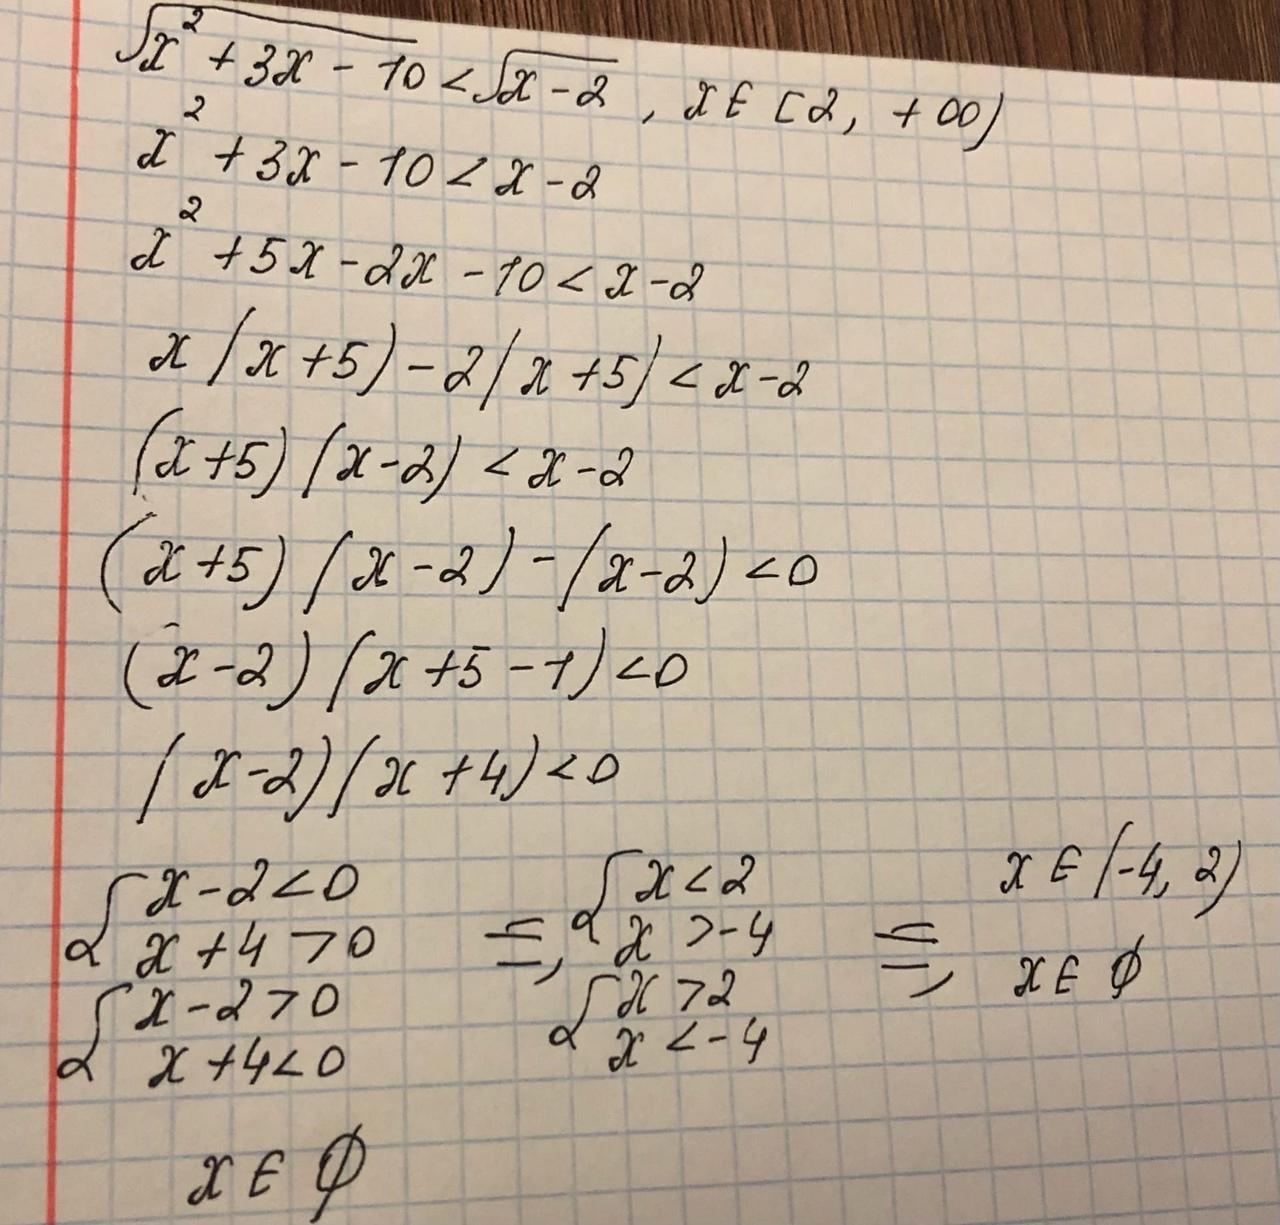 √(x² + 3x - 10) < √(x - 2), x ∈ [2, +∞)
x² + 3x - 10 < x - 2
x² + 5x - 2x - 10 < x - 2
x(x + 5) - 2(x + 5) < x - 2
(x + 5)(x - 2) < x - 2
(x + 5)(x - 2) - (x - 2) < 0
(x - 2)(x + 5 - 1) < 0
(x - 2)(x + 4) < 0
{ x - 2 < 0 =, { x < 2 =, x ∈ (-4, 2)
x + 4 > 0 x > -4
{ x - 2 > 0 { x > 2 x ∈ ∅
x + 4 < 0 x < -4
x ∈ ∅